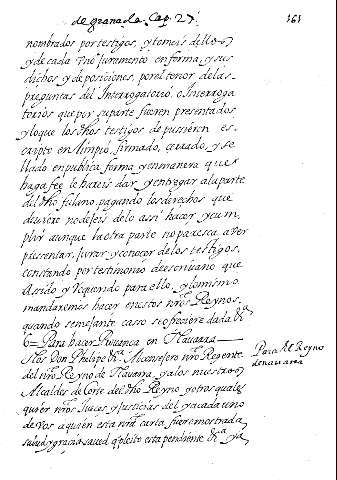 de granada. Cap. 27. 161
nombrados por testigos, y tomeis dellos
y de cada Vno Juramento en forma, y sus
dichos y de posiciones, por el tenor de las
preguntas del Interrogatorio, o Interroga
torios que por su parte fueren presentados
y lo que los dhos testigos de pussieren es-
cripto en limpio, firmado, cerrado, y se
llado en publica forma y en manera que
haga fee le hareis dar, y entregar a la parte
del dho fulano, pagando los derechos que
deuiere no dejeis de lo assi hacer y cum
plir aunque la otra parte no paresca a ver
presentar, jurar y conocer de los testigos,
constando por testimonio de escriuano que
a sido Requerido para ello, y lo mismo
mandaremos hacer en estos nros Reynos,
quando semejante casso se ofreciere dada &a
6 = Para hacer Prouança en Nauarra
Nos Don Phelipe &a Al consejero nro Regente
del nro Reyno de Nauarra, y a los nuestros
Alcaldes de Corte del dho Reyno, y otros quales
quier nros Jueces y Justicias del y a cada uno
de vos a quien esta nra carta fuere mostrada
salud y gracia, saued q pleito esta pendiente &a ya
Para el Reyno
de nauarra